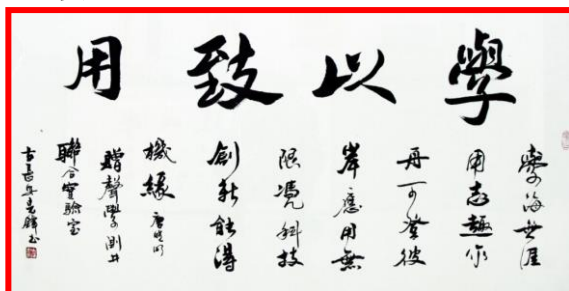 學以致用
學海無涯
用志趣作
舟可登彼
岸應用無
限憑科技
創新能得
機緣 唐曉明
贈聲學測井
聯合實驗室